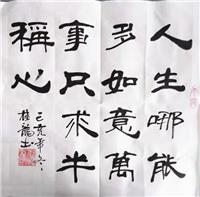 人生哪能
多如意萬
事只求半
稱心
己亥年冬
桂龍书